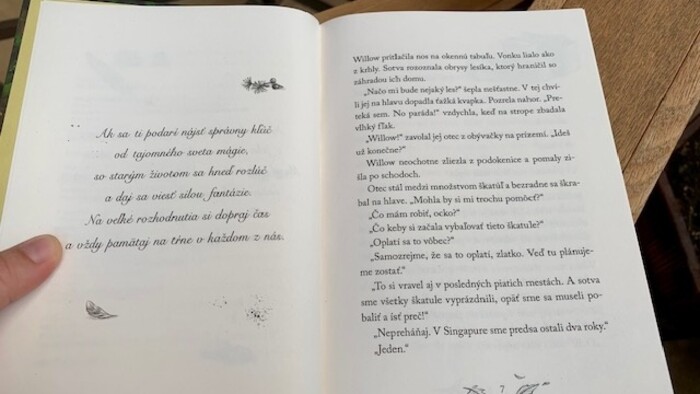 Ak sa ti podarí nájsť správny kľúč
od tajomného sveta mágie,
so starým životom sa hneď rozlúč
a daj sa viesť silou fantázie.
Na veľké rozhodnutia si dopraj čas
a vždy pamätaj na tŕne v každom z nás.
Willow pritlačila nos na okennú tabuľu. Vonku lialo ako
z krhly. Sotva rozoznala obrysy lesíka, ktorý hraničil so
záhradou ich domu.
„Načo mi bude nejaký les?“ šepla nešťastne. V tej chví-
li jej na hlavu dopadla ťažká kvapka. Pozrela nahor. „Pre-
teká sem. No paráda!“ vzdychla, keď na strope zbadala
vlhký fľak.
„Willow!“ zavolal jej otec z obývačky na prízemí. „Ideš
už konečne?“
Willow neochotne zliezla z podokenice a pomaly zi-
šla po schodoch.
Otec stál medzi množstvom škatúľ a bezradne sa škra-
bal na hlave. „Mohla by si mi trochu pomôcť?“
„Čo mám robiť, ocko?“
„Čo keby si začala vybaľovať tieto škatule?“
„Oplatí sa to vôbec?“
„Samozrejme, že sa to oplatí, zlatko. Veď tu plánuje-
me zostať.“
„To si vravel aj v posledných piatich mestách. A sotva
sme všetky škatule vyprázdnili, opäť sme sa museli po-
baliť a ísť preč!“
„Nepreháňaj. V Singapure sme predsa ostali dva roky.“
„Jeden.“
7